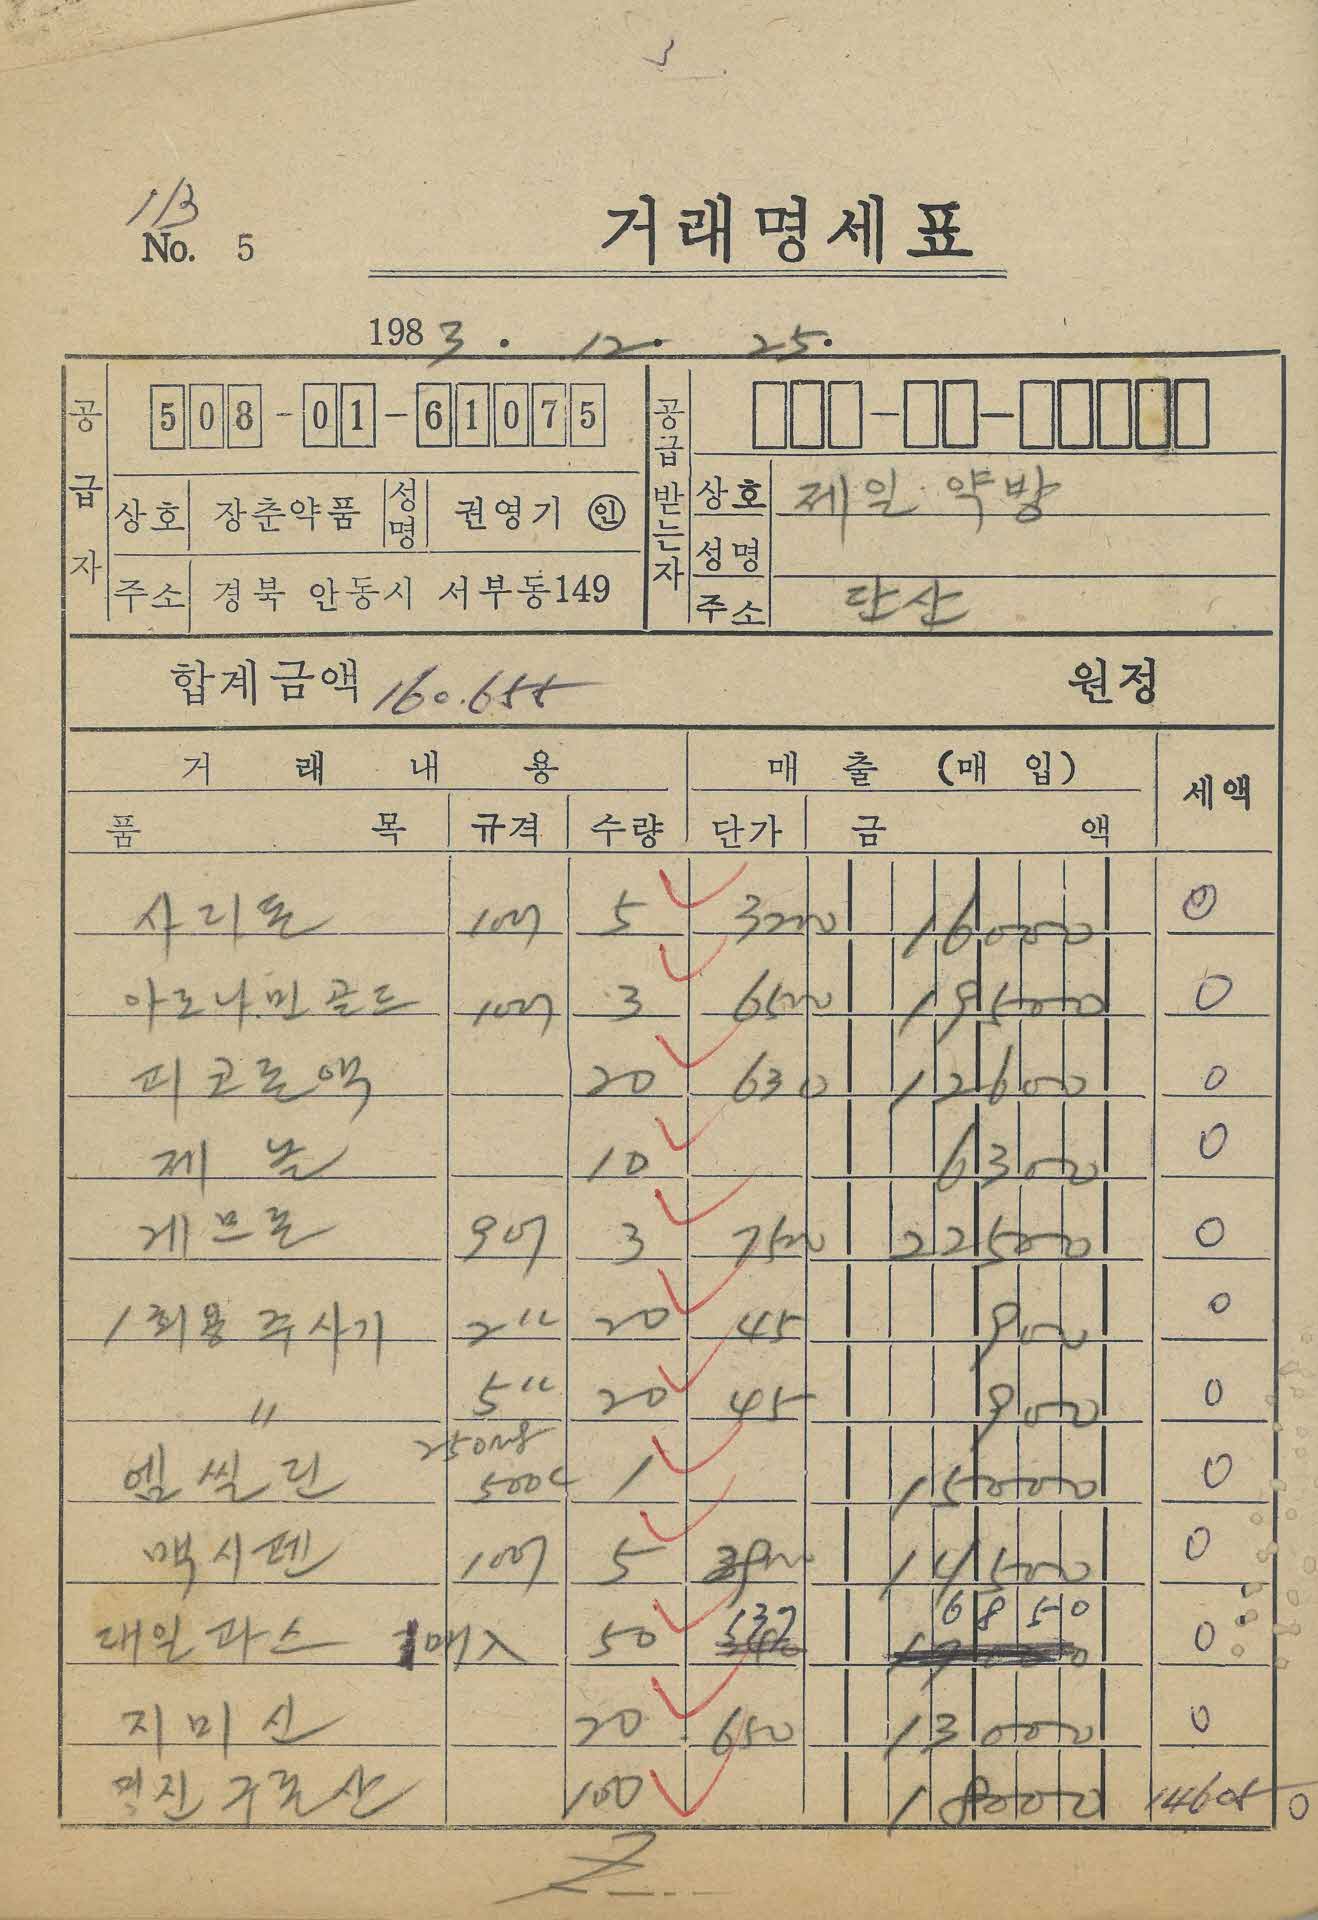 3
1/3
No. 5
거래명세표
1983. 12. 25.
공급자
508-01-61075
상호 장춘약품 성명 권영기 ㊞
주소 경북 안동시 서부동149
공급받는자
상호 제일약방
성명
주소 단산
합계금액 160.655 원정
거래내용 매출(매입) 세액
품목 규격 수량 단가 금액
사리돈 5 3200 16000 0
아로나민골드 3 6500 19500 0
피코로액 20 630 12600 0
제놀 10 6300 0
게므론 3 7500 22500 0
1회용 주사기 2" 20 45 900 0
" 5" 20 45 900 0
엠씰린 250mg 500c 1 15000 0
맥시펜 5 14500 0
대일파스 1매入 50 137 6850 0
지미신 20 650 13000 0
구론산 100 18000 14605 0